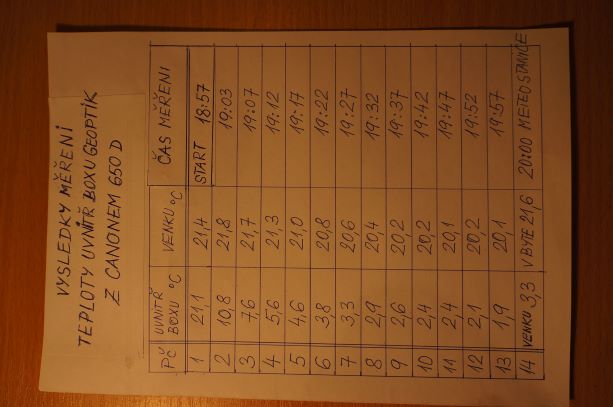 VYSLEDKY MĚŘENI
TEPLOTY UVNITŘ BOXU GEOPTIK
Z CANONEM 650 D
PČ UVNITŘ BOXU °C VENKU °C ČAS MĚŘENI
1 21,1 21,4 START 18:57
2 10,8 21,8 19:03
3 7,6 21,7 19:07
4 5,6 21,3 19:12
5 4,6 21,0 19:17
6 3,8 20,8 19:22
7 3,3 20,6 19:27
8 2,9 20,4 19:32
9 2,6 20,2 19:37
10 2,4 20,2 19:42
11 2,4 20,1 19:47
12 2,1 20,2 19:52
13 1,9 20,1 19:57
14 VENKU 3,3 V BYTE 21,6 20:00 METEOSTANICE